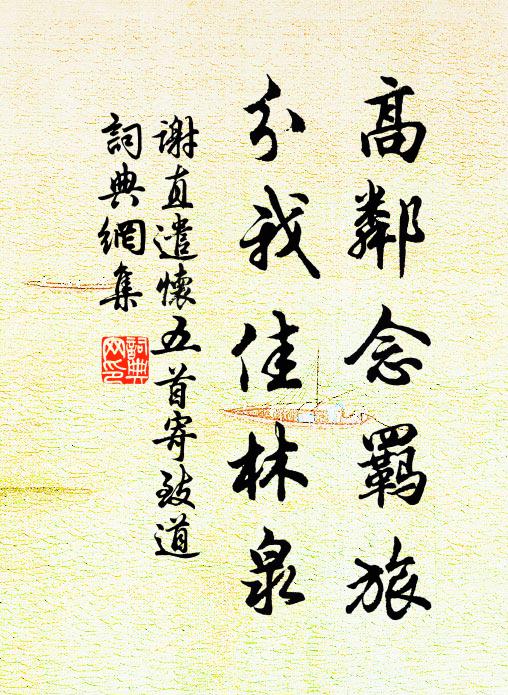 高鄰念羈旅
分我佳林泉
谢直遣懷五首寄致道
詞典網集
詞典
网印